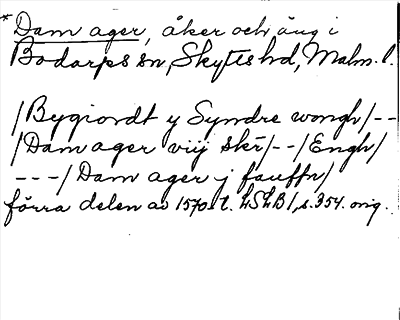 * Dam ager, åker och äng i
Bodarps sn, Skytts hd, Malm. l.
/Bygiordt y Syndre wongh/--
/Dam ager viij skr/--/Engh/
---/Dam ager j fauffn/
förra delen av 1570 t. LSLB 1, s. 354. orig.